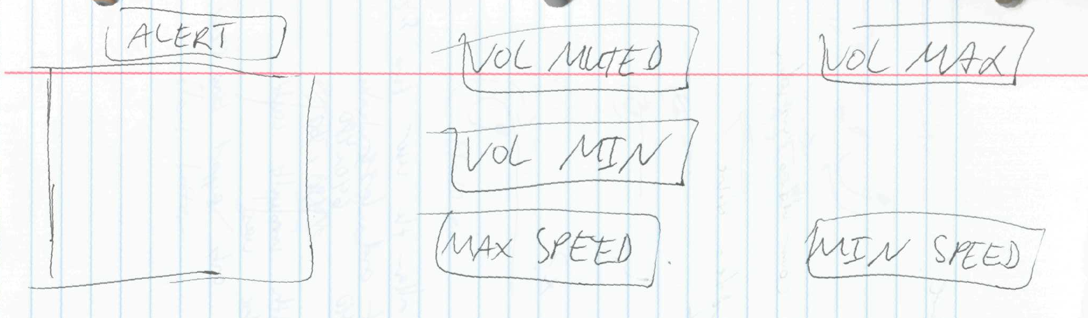 ALERT
VOL MUTED
VOL MAX
VOL MIN
MAX SPEED
MIN SPEED